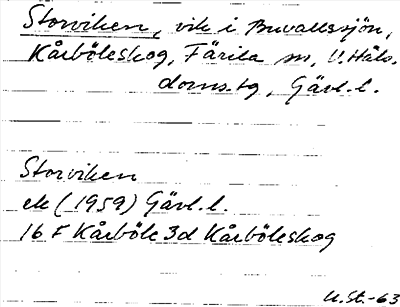 Storviken, vik i Buvallssjön,
Kårböleskog, Färila sn, V. Häls.
doms.tg, Gävl.l.
Storviken
ek (1959) Gävl.l.
16 F Kårböle 3d Kårböleskog
U.St.-63